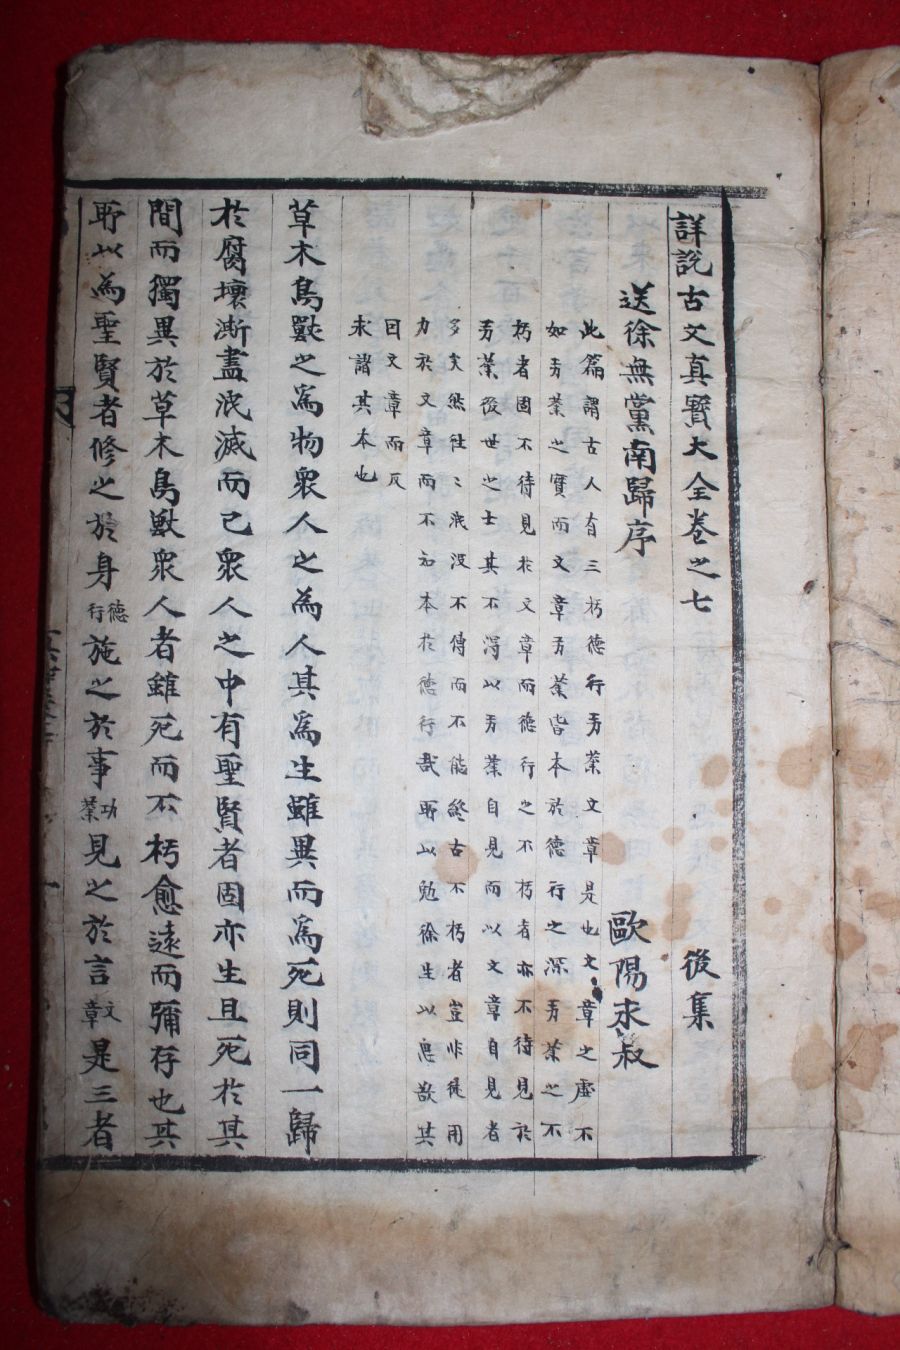 詳說古文真寶大全卷之七 後集
送徐無黨南歸序 歐陽永叔
此篇謂古人有三朽德行功業文章是也文章之虛不
如功業之實而文章功業皆本於德行之深功業之不
朽者固不待見於文章而德行之不朽者亦不待見於
功業後世之士其不得以功業自見而以文章自見者
多矣然往〻泯沒不傳而不能終古不朽者豈非徒用
力於文章而不知本於德行哉所以勉徐生以思欲其
因文章而反
未諸其本也
草木鳥獸之為物衆人之為人其為生雖異而為死則同一歸
於腐壞澌盡泯滅而已衆人之中有聖賢者固亦生且死於其
間而獨異於草木鳥獸衆人者雖死而不朽愈遠而彌存也其
所以為聖賢者修之於身德行施之於事功業見之於言文章是三者